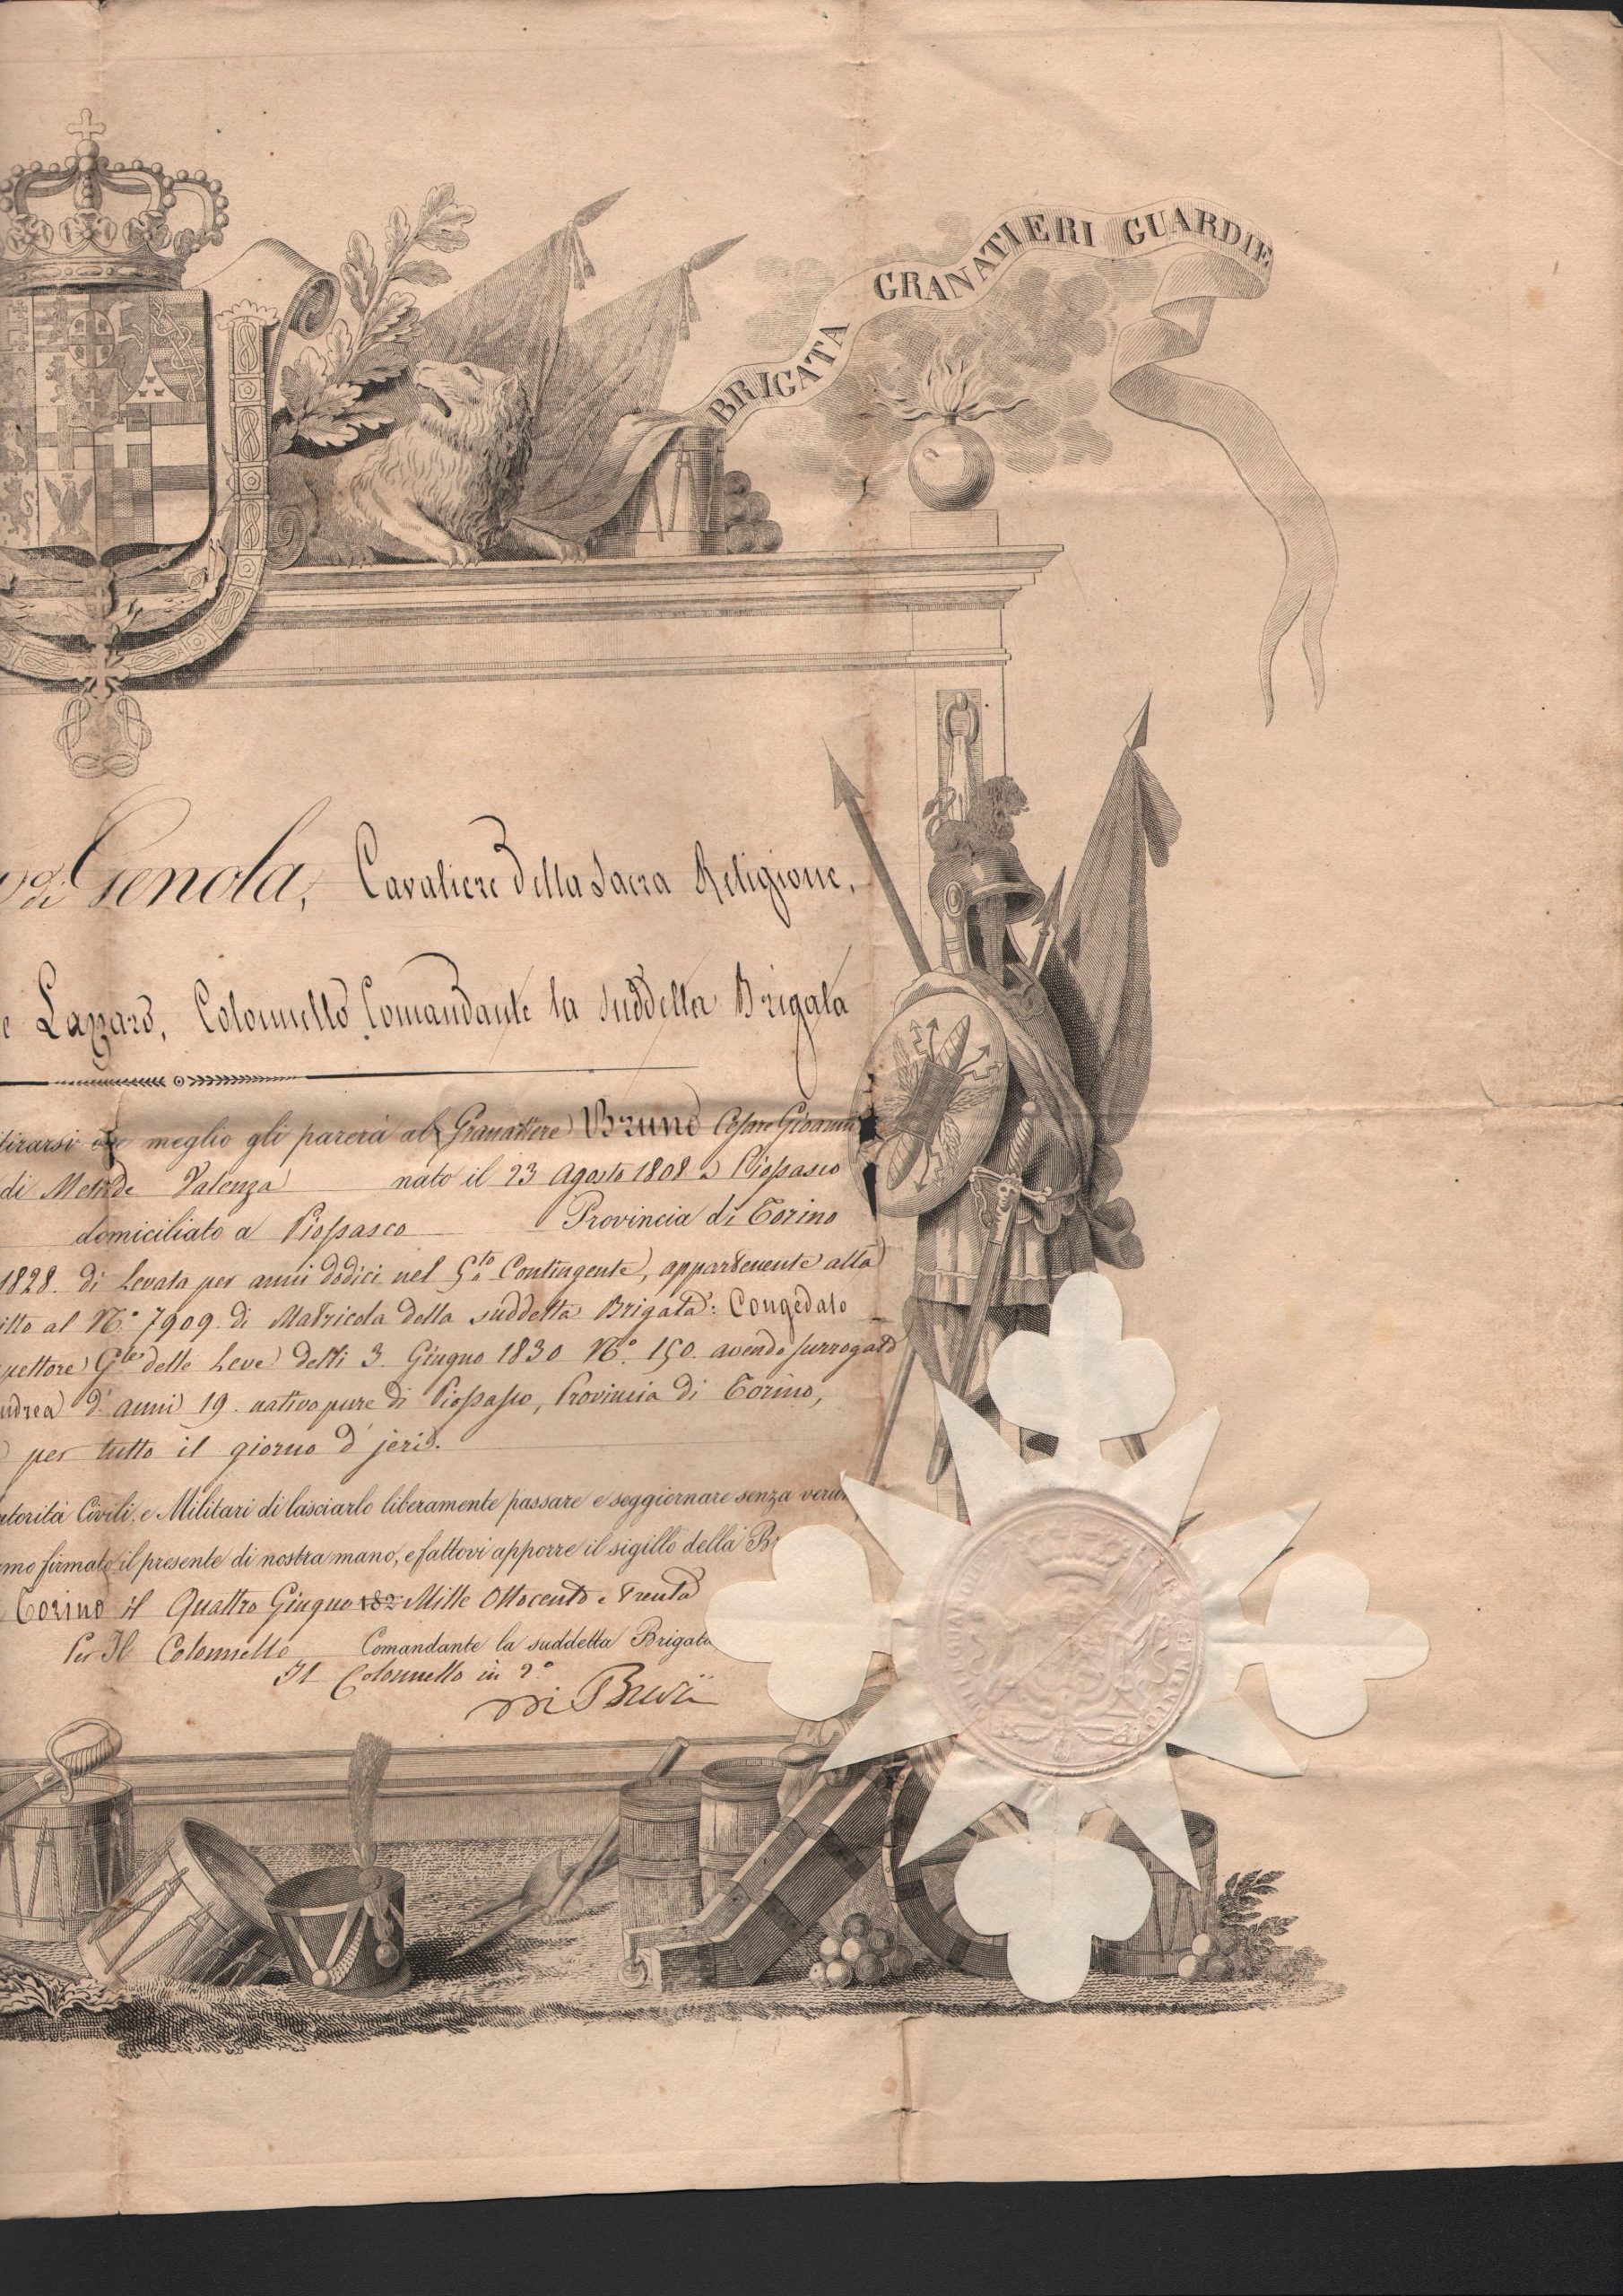 BRIGATA GRANATIERI GUARDIE
di Genola, Cavaliere della Sacra Religione,
e Lazzaro, Colonnello Comandante la suddetta Brigata
tirarsi ove meglio gli parerà al Granatiere Bruno Cesare Giovanni
di Metilde Valenza nato il 23 Agosto 1808 a Piossasco
domiciliato a Piossasco Provincia di Torino
1828. di Levata per anni dodici nel 5.to Contingente, appartenente alla
itto al N.° 7909 di Matricola della suddetta Brigata: Congedato
pettore G.le delle Leve delli 3 Giugno 1830 N.° 150. avendo surrogato
ndrea d'anni 19. nativo pure di Piossasco, Provincia di Torino,
per tutto il giorno d'jeri.
utorità Civili, e Militari di lasciarlo liberamente passare e seggiornare senza verun
mo firmato il presente di nostra mano, e fattovi apporre il sigillo della Br
Torino il Quattro Giugno 182 Mille Ottocento e Trenta
Per Il Colonnello Comandante la suddetta Brigata
Il Colonnello in 2.°